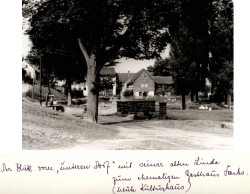 Der Blick vom „unteren Dorf" mit seiner alten Linde
zum ehemaligen Gasthaus Fuchs
(heute Kulturhaus)